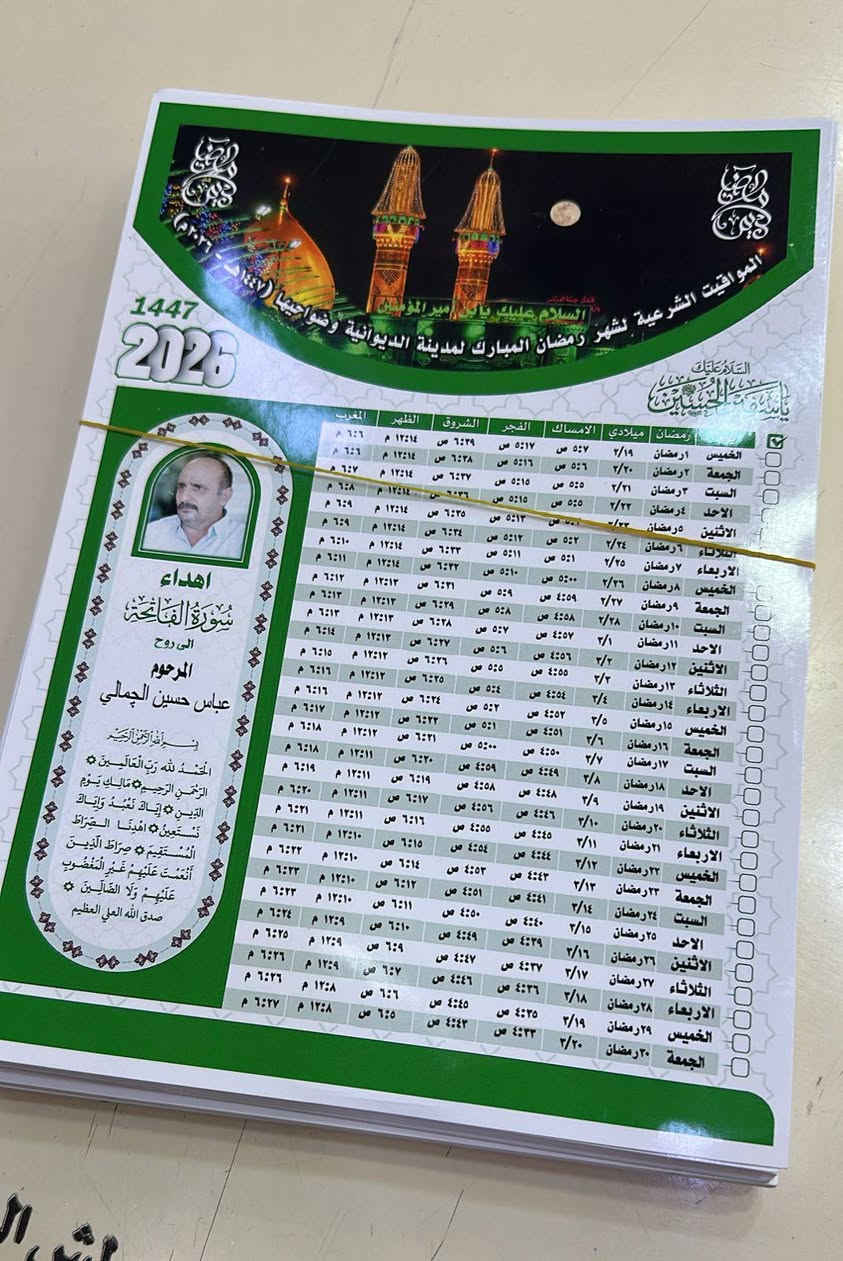 السلام عليك يا امير المؤمنين
المواقيت الشرعية لشهر رمضان المبارك لمدينة الديوانية وضواحيها (١٤٤٧هـ - ٢٠٢٦م)
1447
2026
السلام عليك
يا سفير الحسين
رمضان ميلادي الامساك الفجر الشروق الظهر المغرب
الخميس ١رمضان ٢/١٩ ٥:٧ ص ٥:١٧ ص ٦:٣٩ ص ١٢:١٤ م ٦:٦ م
الجمعة ٢رمضان ٢/٢٠ ٥:٦ ص ٥:١٦ ص ٦:٣٨ ص ١٢:١٤ م ٦:٦ م
السبت ٣رمضان ٢/٢١ ٥:٥ ص ٥:١٥ ص ٦:٣٧ ص ١٢:١٤ م ٦:٧ م
الاحد ٤رمضان ٢/٢٢ ٥:٥ ص ٥:١٥ ص ٦:٣٦ ص ١٢:١٤ م ٦:٨ م
الاثنين ٥رمضان ٢/٢٣ ٥:١٣ ص ٦:٣٥ ص ١٢:١٤ م ٦:٩ م
الثلاثاء ٦رمضان ٢/٢٤ ٥:٢ ص ٥:١٢ ص ٦:٣٤ ص ١٢:١٤ م ٦:٩ م
الاربعاء ٧رمضان ٢/٢٥ ٥:١ ص ٥:١١ ص ٦:٣٣ ص ١٢:١٤ م ٦:١٠ م
الخميس ٨رمضان ٢/٢٦ ٥:٠٠ ص ٥:١٠ ص ٦:٣٢ ص ١٢:١٤ م ٦:١١ م
الجمعة ٩رمضان ٢/٢٧ ٤:٥٩ ص ٥:٩ ص ٦:٣١ ص ١٢:١٣ م ٦:١٢ م
السبت ١٠رمضان ٢/٢٨ ٤:٥٨ ص ٥:٨ ص ٦:٢٩ ص ١٢:١٣ م ٦:١٣ م
الاحد ١١رمضان ٣/١ ٤:٥٧ ص ٥:٧ ص ٦:٢٨ ص ١٢:١٣ م ٦:١٣ م
الاثنين ١٢رمضان ٣/٢ ٤:٥٦ ص ٥:٦ ص ٦:٢٧ ص ١٢:١٣ م ٦:١٤ م
الثلاثاء ١٣رمضان ٣/٣ ٤:٥٥ ص ٥:٥ ص ٦:٢٦ ص ١٢:١٣ م ٦:١٥ م
الاربعاء ١٤رمضان ٣/٤ ٤:٥٤ ص ٥:٤ ص ٦:٢٥ ص ١٢:١٢ م ٦:١٦ م
الخميس ١٥رمضان ٣/٥ ٤:٥٢ ص ٥:٢ ص ٦:٢٤ ص ١٢:١٢ م ٦:١٦ م
الجمعة ١٦رمضان ٣/٦ ٤:٥١ ص ٥:١ ص ٦:٢٢ ص ١٢:١٢ م ٦:١٧ م
السبت ١٧رمضان ٣/٧ ٤:٥٠ ص ٥:٠٠ ص ٦:٢١ ص ١٢:١٢ م ٦:١٨ م
الاحد ١٨رمضان ٣/٨ ٤:٤٩ ص ٤:٥٩ ص ٦:٢٠ ص ١٢:١١ م ٦:١٨ م
الاثنين ١٩رمضان ٣/٩ ٤:٤٨ ص ٤:٥٨ ص ٦:١٩ ص ١٢:١١ م ٦:١٩ م
الثلاثاء ٢٠رمضان ٣/١٠ ٤:٤٦ ص ٤:٥٦ ص ٦:١٧ ص ١٢:١١ م ٦:٢٠ م
الاربعاء ٢١رمضان ٣/١١ ٤:٤٥ ص ٤:٥٥ ص ٦:١٦ ص ١٢:١١ م ٦:٢١ م
الخميس ٢٢رمضان ٣/١٢ ٤:٤٤ ص ٤:٥٤ ص ٦:١٥ ص ١٢:١٠ م ٦:٢١ م
الجمعة ٢٣رمضان ٣/١٣ ٤:٤٣ ص ٤:٥٣ ص ٦:١٤ ص ١٢:١٠ م ٦:٢٢ م
السبت ٢٤رمضان ٣/١٤ ٤:٤١ ص ٤:٥١ ص ٦:١٢ ص ١٢:١٠ م ٦:٢٣ م
الاحد ٢٥رمضان ٣/١٥ ٤:٤٠ ص ٤:٥٠ ص ٦:١١ ص ١٢:١٠ م ٦:٢٣ م
الاثنين ٢٦رمضان ٣/١٦ ٤:٣٩ ص ٤:٤٩ ص ٦:١٠ ص ١٢:٩ م ٦:٢٤ م
الثلاثاء ٢٧رمضان ٣/١٧ ٤:٣٧ ص ٤:٤٧ ص ٦:٩ ص ١٢:٩ م ٦:٢٥ م
الاربعاء ٢٨رمضان ٣/١٨ ٤:٣٦ ص ٤:٤٦ ص ٦:٧ ص ١٢:٩ م ٦:٢٦ م
الخميس ٢٩رمضان ٣/١٩ ٤:٣٥ ص ٤:٤٥ ص ٦:٦ ص ١٢:٨ م ٦:٢٦ م
الجمعة ٣٠رمضان ٣/٢٠ ٤:٣٣ ص ٤:٤٣ ص ٦:٥ ص ١٢:٨ م ٦:٢٧ م
اهداء
سُورَةُ الفَاتِحَة
الى روح
المرحوم
عباس حسين الجمالي
بسم الله الرحمن الرحيم
الْحَمْدُ لله رَبِّ الْعَالَمِينَ
الرَّحْمَنِ الرَّحِيمِ مَالِكِ يَوْمِ
الدِّينِ إِيَّاكَ نَعْبُدُ وَإِيَّاكَ
نَسْتَعِينُ اهْدِنَا الصِّرَاطَ
الْمُسْتَقِيمَ صِرَاطَ الَّذِينَ
أَنْعَمْتَ عَلَيْهِمْ غَيْرِ الْمَغْضُوبِ
عَلَيْهِمْ وَلَا الضَّالِّينَ
صدق الله العلي العظيم